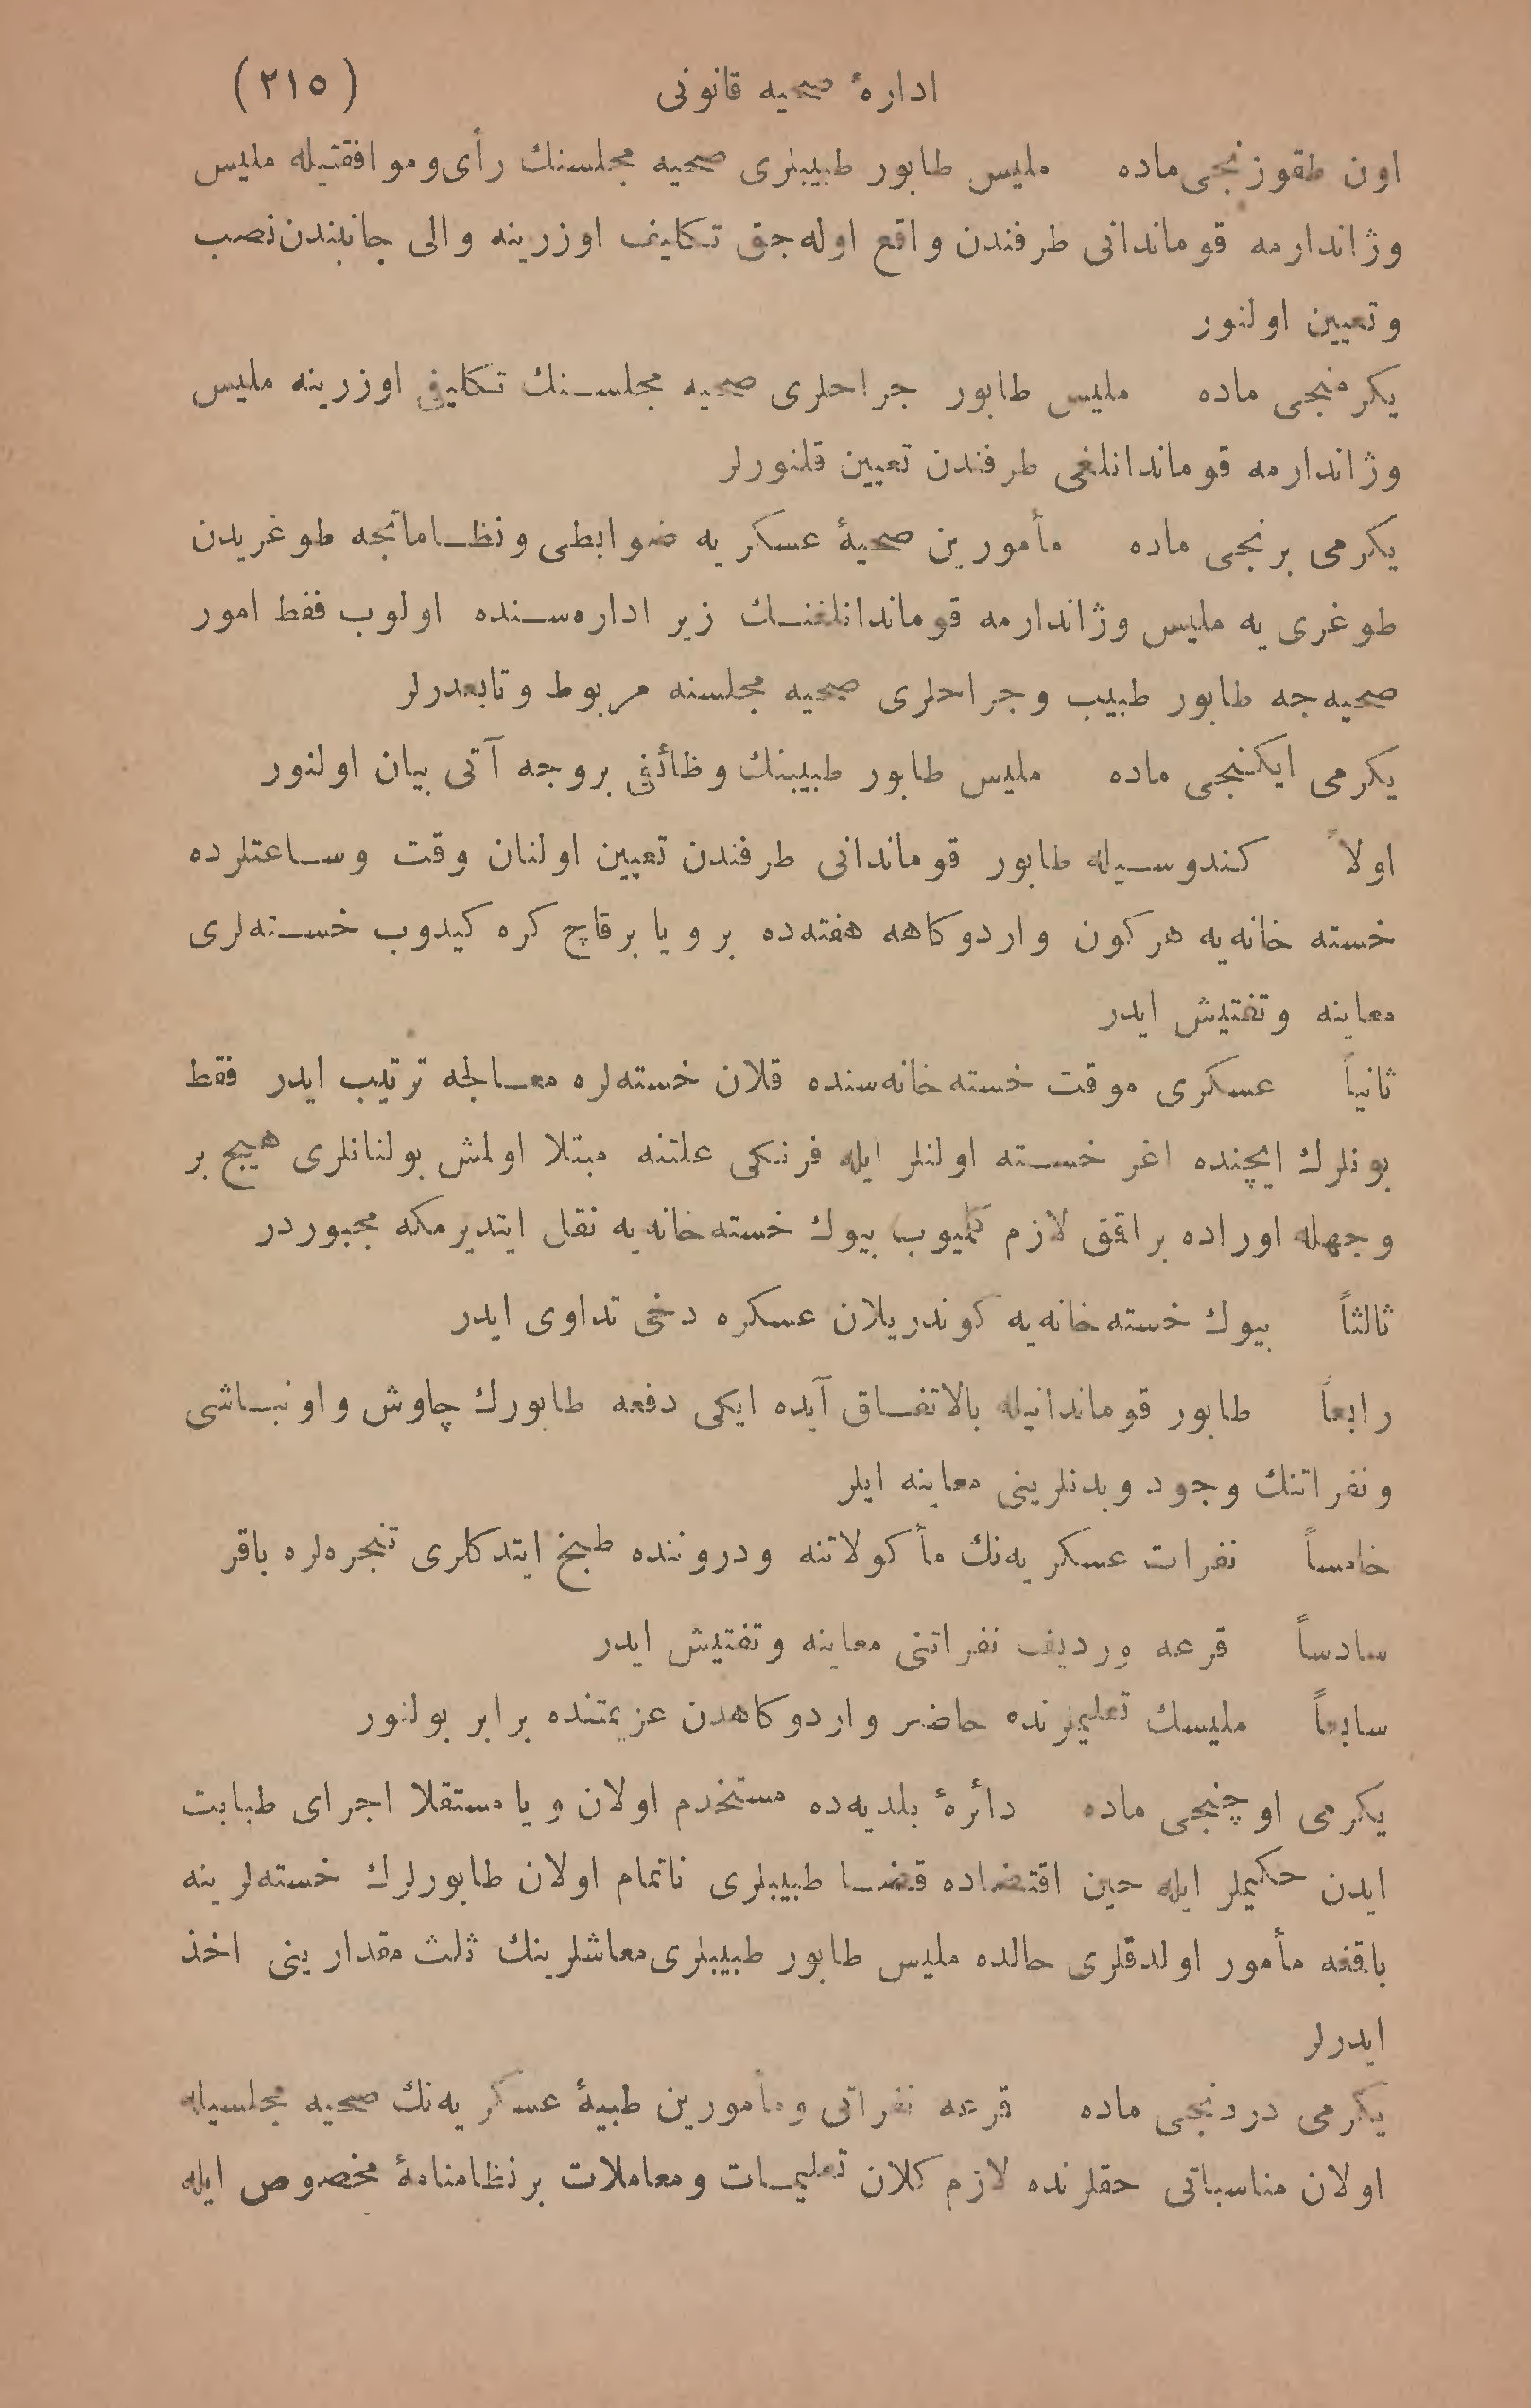 ادارهٔ صحیه قانونی (٢١٥)
اون طقوزنجی ماده ملیس طابور طبیبلری صحیه مجلسنك رأی وموافقتیله ملیس
وژاندارمه قوماندانی طرفندن واقع اوله جق تكلیف اوزرینه والی جانبندن نصب
وتعیین اولنور
یكرمنجی ماده ملیس طابور جراحلری صحیه مجلسنك تكلیفی اوزرینه ملیس
وژاندارمه قوماندانلغی طرفندن تعیین قلنورلر
یكرمی برنجی ماده مأمورین صحیهٔ عسكریه ضوابطی ونظاماتجه طوغریدن
طوغری یه ملیس وژاندارمه قوماندانلغنك زیر اداره‌سنده اولوب فقط امور
صحیه‌جه طابور طبیب وجراحلری صحیه مجلسنه مربوط وتابعدرلر
یكرمی ایكنجی ماده ملیس طابور طبیبنك وظائفی بروجه آتی بیان اولنور
اولاً كندوسیله طابور قوماندانی طرفندن تعیین اولنان وقت وساعتلرده
خسته خانه‌یه هركون واردوكاهه هفته‌ده بر ویا برقاچ كره كیدوب خسته‌لری
معاینه وتفتیش ایدر
ثانیاً عسكری موقت خسته خانه‌سنده قلان خسته‌لره معالجه ترتیب ایدر فقط
بونلرك ایچنده اغر خسته اولنلر ایله فرنكی علتنه مبتلا اولمش بولنانلری هیچ بر
وجهله اوراده براقق لازم كلمیوب بیوك خسته خانه‌یه نقل ایتدیرمكه مجبوردر
ثالثاً بیوك خسته خانه‌یه كوندریلان عسكره دخی تداوی ایدر
رابعاً طابور قوماندانیله بالاتفاق آیده ایكی دفعه طابورك چاوش واونباشی
ونفراتنك وجود وبدنلرینی معاینه ایلر
خامساً نفرات عسكریه‌نك مأكولاتنه ودروننده طبخ ایتدكلری تنجره‌لره باقر
سادساً قرعه وردیف نفراتنی معاینه وتفتیش ایدر
سابعاً ملیسك تعلیملرنده حاضر واردوكاهدن عزیمتنده برابر بولنور
یكرمی اوچنجی ماده دائرهٔ بلدیه‌ده مستخدم اولان ویا مستقلا اجرای طبابت
ایدن حكیملر ایله حین اقتضاده قضا طبیبلری ناتمام اولان طابورلرك خسته‌لرینه
باقغه مأمور اولدقلری حالده ملیس طابور طبیبلری معاشلرینك ثلث مقدارینی اخذ
ایدرلر
یكرمی دردنجی ماده قرعه نفراتی ومأمورین طبیهٔ عسكریه‌نك صحیه مجلسیله
اولان مناسباتی حقلرنده لازم كلان تعلیمات ومعاملات برنظامنامهٔ مخصوص ایله